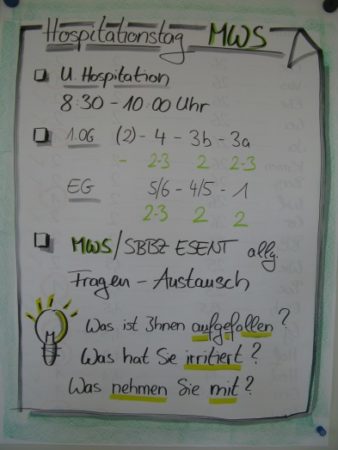 Hospitationstag MWS
U. Hospitation
8:30 - 10:00 Uhr
1.OG (2) - 4 - 3b - 3a
- 2-3 2 2-3
EG 5/6 - 4/5 - 1
2-3 2 2
MWS/SBBZ ESENT allg.
Fragen - Austausch
Was ist Ihnen aufgefallen?
Was hat Se irritiert?
Was nehmen Sie mit?